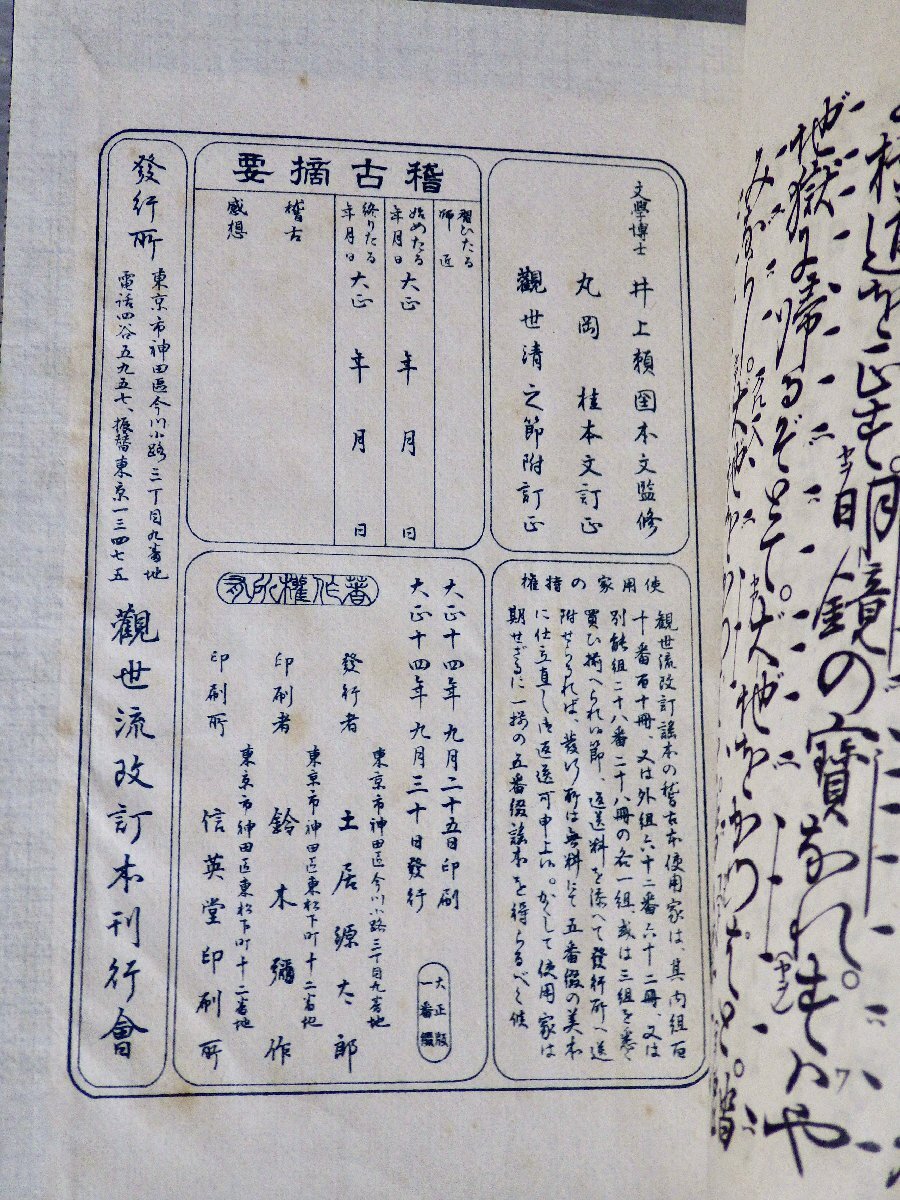 横道を正す。明鏡の寳なれ。すハや
地獄に帰るぞとて。大地を
文學博士 井上頼圀本文監修
丸岡 桂本文訂正
觀世清之節附訂正
稽古摘要
習ひたる師匠
始めたる年月日 大正 年 月 日
終りたる年月日 大正 年 月 日
稽古感想
使用家の特權
観世流改訂謡本の稽古本使用家は、其内組百
十番百十冊、又は外組六十二番六十二冊、又は
別能組二十八番二十八冊の各一組、或は三組を悉く
買ひ揃へられい節、返送料を添へて發行所へ送
附せられば、發行所は無料にて五番綴の美本
に仕立直し御返送可申上い。かくして使用家は
期せざるに一揃の五番綴謡本を得らるべく候
著作權所有
大正十四年九月二十五日印刷
大正十四年九月三十日發行
大正版
一番綴
東京市神田區今川小路三丁目九番地
發行者 土居源太郎
東京市神田区東松下町十二番地
印刷者 鈴木彌作
東京市神田区東松下町十二番地
印刷所 信英堂印刷所
發行所 東京市神田區今川小路三丁目九番地
電話四谷五九五七、振替東京一三四七五
觀世流改訂本刊行會